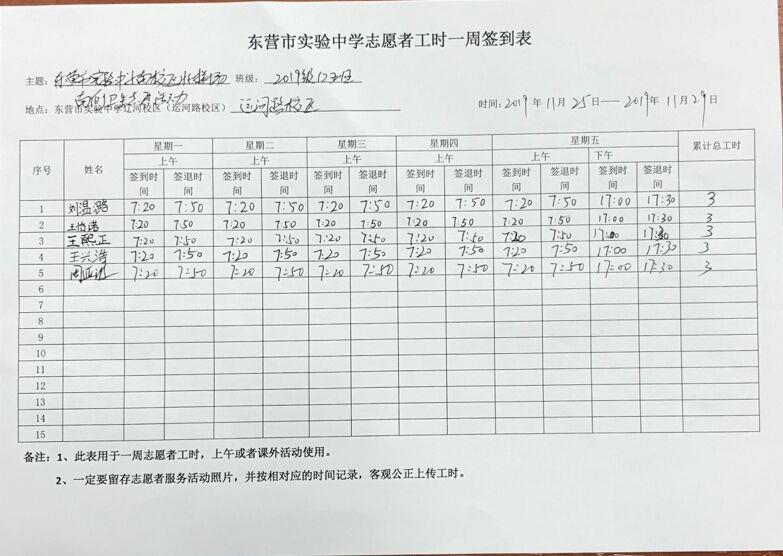 东营市实验中学志愿者工时一周签到表
主题： 东营市实验中学南校区 班级： 2019级12班
南 卫生 活动
地点：东营市实验中学辽河校区（运河路校区） 运河路校区 时间：2019年11月25日——2019年11月29日
序号 姓名 星期一 星期二 星期三 星期四 星期五 累计总工时
上午 上午 上午 上午 上午 下午
签到时间 签退时间 签到时间 签退时间 签到时间 签退时间 签到时间 签退时间 签到时间 签退时间 签到时间 签退时间
1 刘温路 7:20 7:50 7:20 7:50 7:20 7:50 7:20 7:50 7:20 7:50 17:00 17:30 3
2 王 7:20 7:50 7:20 7:50 7:20 7:50 7:20 7:50 7:20 7:50 17:00 17:30 3
3 王熙正 7:20 7:50 7:20 7:50 7:20 7:50 7:20 7:50 7:20 7:50 17:00 17:30 3
4 王兴浩 7:20 7:50 7:20 7:50 7:20 7:50 7:20 7:50 7:20 7:50 17:00 17:30 3
5 周亚 7:20 7:50 7:20 7:50 7:20 7:50 7:20 7:50 7:20 7:50 17:00 17:30 3
6
7
8
9
10
11
12
13
14
15
备注：1、此表用于一周志愿者工时，上午或者课外活动使用。
2、一定要留存志愿者服务活动照片，并按相对应的时间记录，客观公正上传工时。